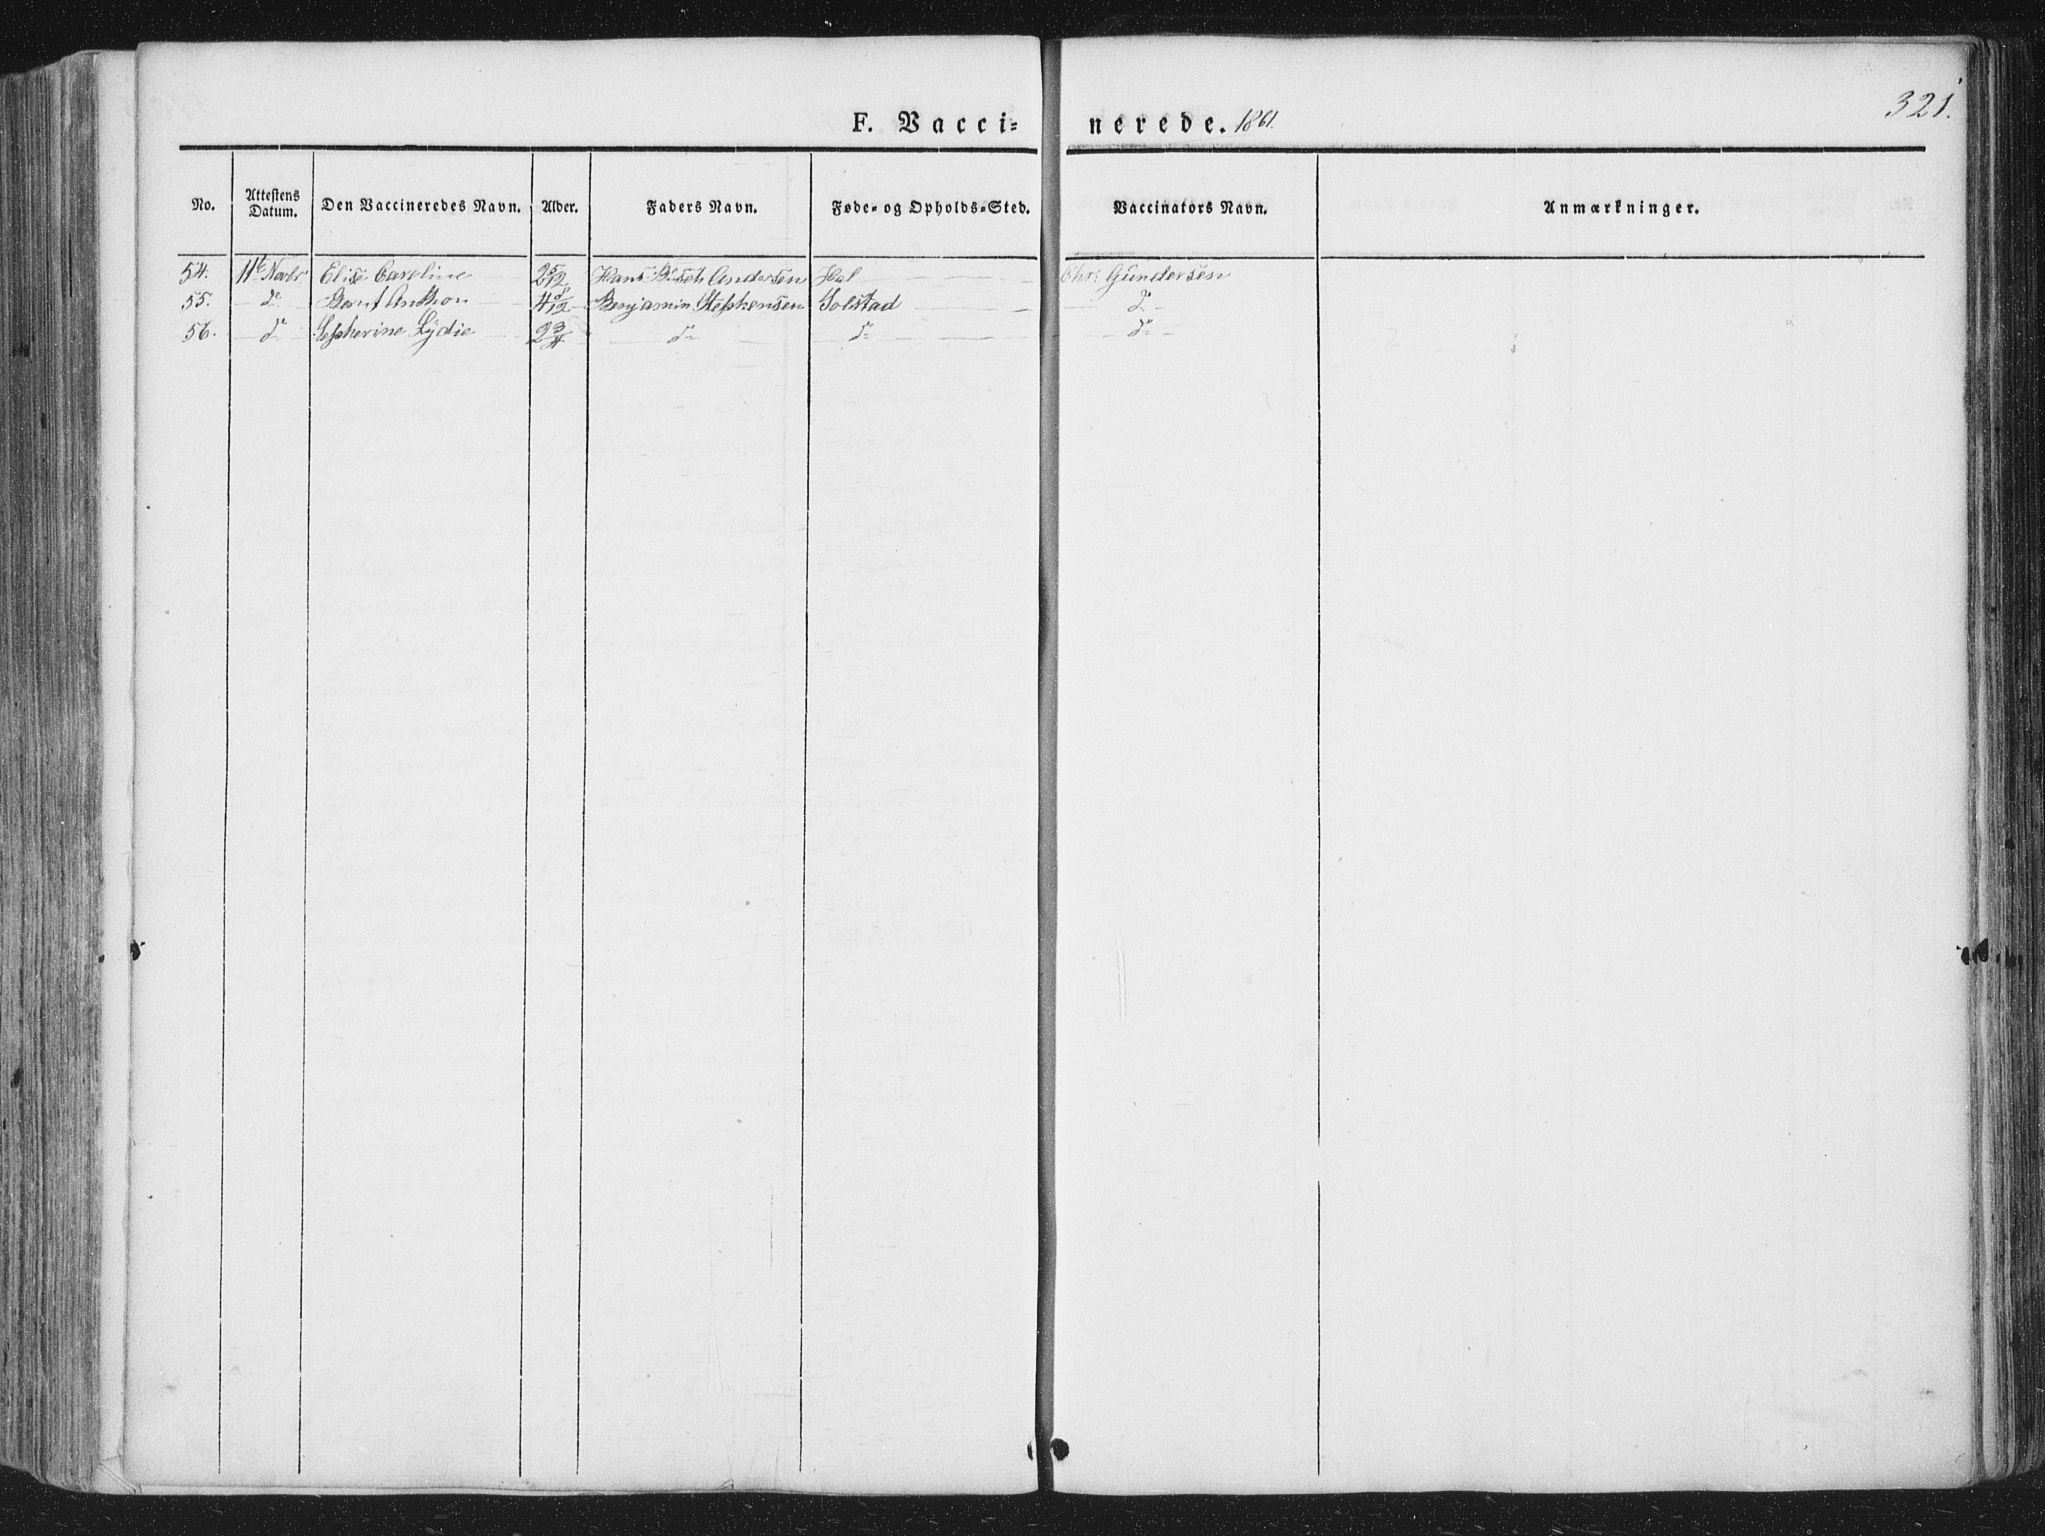 321.
F. Vacci= nerede. 1861.
No. Attestens Datum. Den Vaccineredes Navn. Alder. Faders Navn. Føde- og Opholds-Sted. Vaccinators Navn. Anmærkninger.
54. 11te Novbr Elise Caroline 2 5/12 Hans Andersen Hol Chr. Gundersen
55. do Bernt Anthon 4 8/12 Benjamin Stephensen Solstad do
56. do Sepherine Lydie 2 3/4 do do do